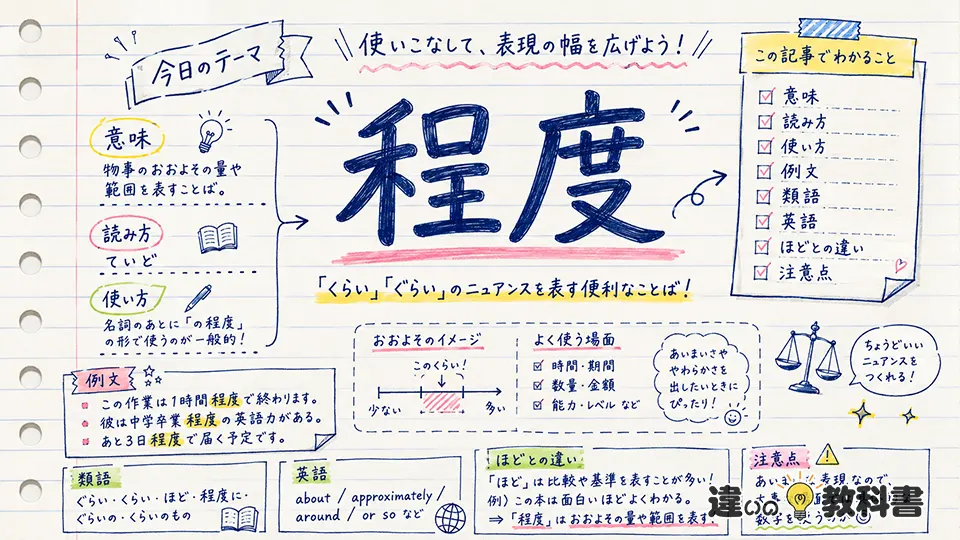 今日のテーマ
使いこなして、表現の幅を広げよう！
この記事でわかること
意味
読み方
使い方
例文
類語
英語
ほどとの違い
注意点
意味
物事のおおよその量や
範囲を表すことば。
読み方
ていど
使い方
名詞のあとに「の程度」
の形で使うのが一般的！
程度
「くらい」「ぐらい」のニュアンスを表す便利なことば！
おおよそのイメージ
このくらい！
少ない
多い
よく使う場面
時間・期間
数量・金額
能力・レベル など
あいまいさや
やわらかさを
出したいときに
ぴったり！
ちょうどいい
ニュアンスを
つくれる！
例文
この作業は1時間程度で終わります。
彼は中学卒業程度の英語力がある。
あと3日程度で届く予定です。
類語
ぐらい・くらい・ほど・程度に・
ぐらいの・くらいのもの
英語
about / approximately /
around / or so など
ほどとの違い
「ほど」は比較や基準を表すことが多い！
例）この本は面白いほどよくわかる。
⇒「程度」はおおよその量や範囲を表す！
注意点
あいま 表現なので、
数字を使うのが
違いの教科書